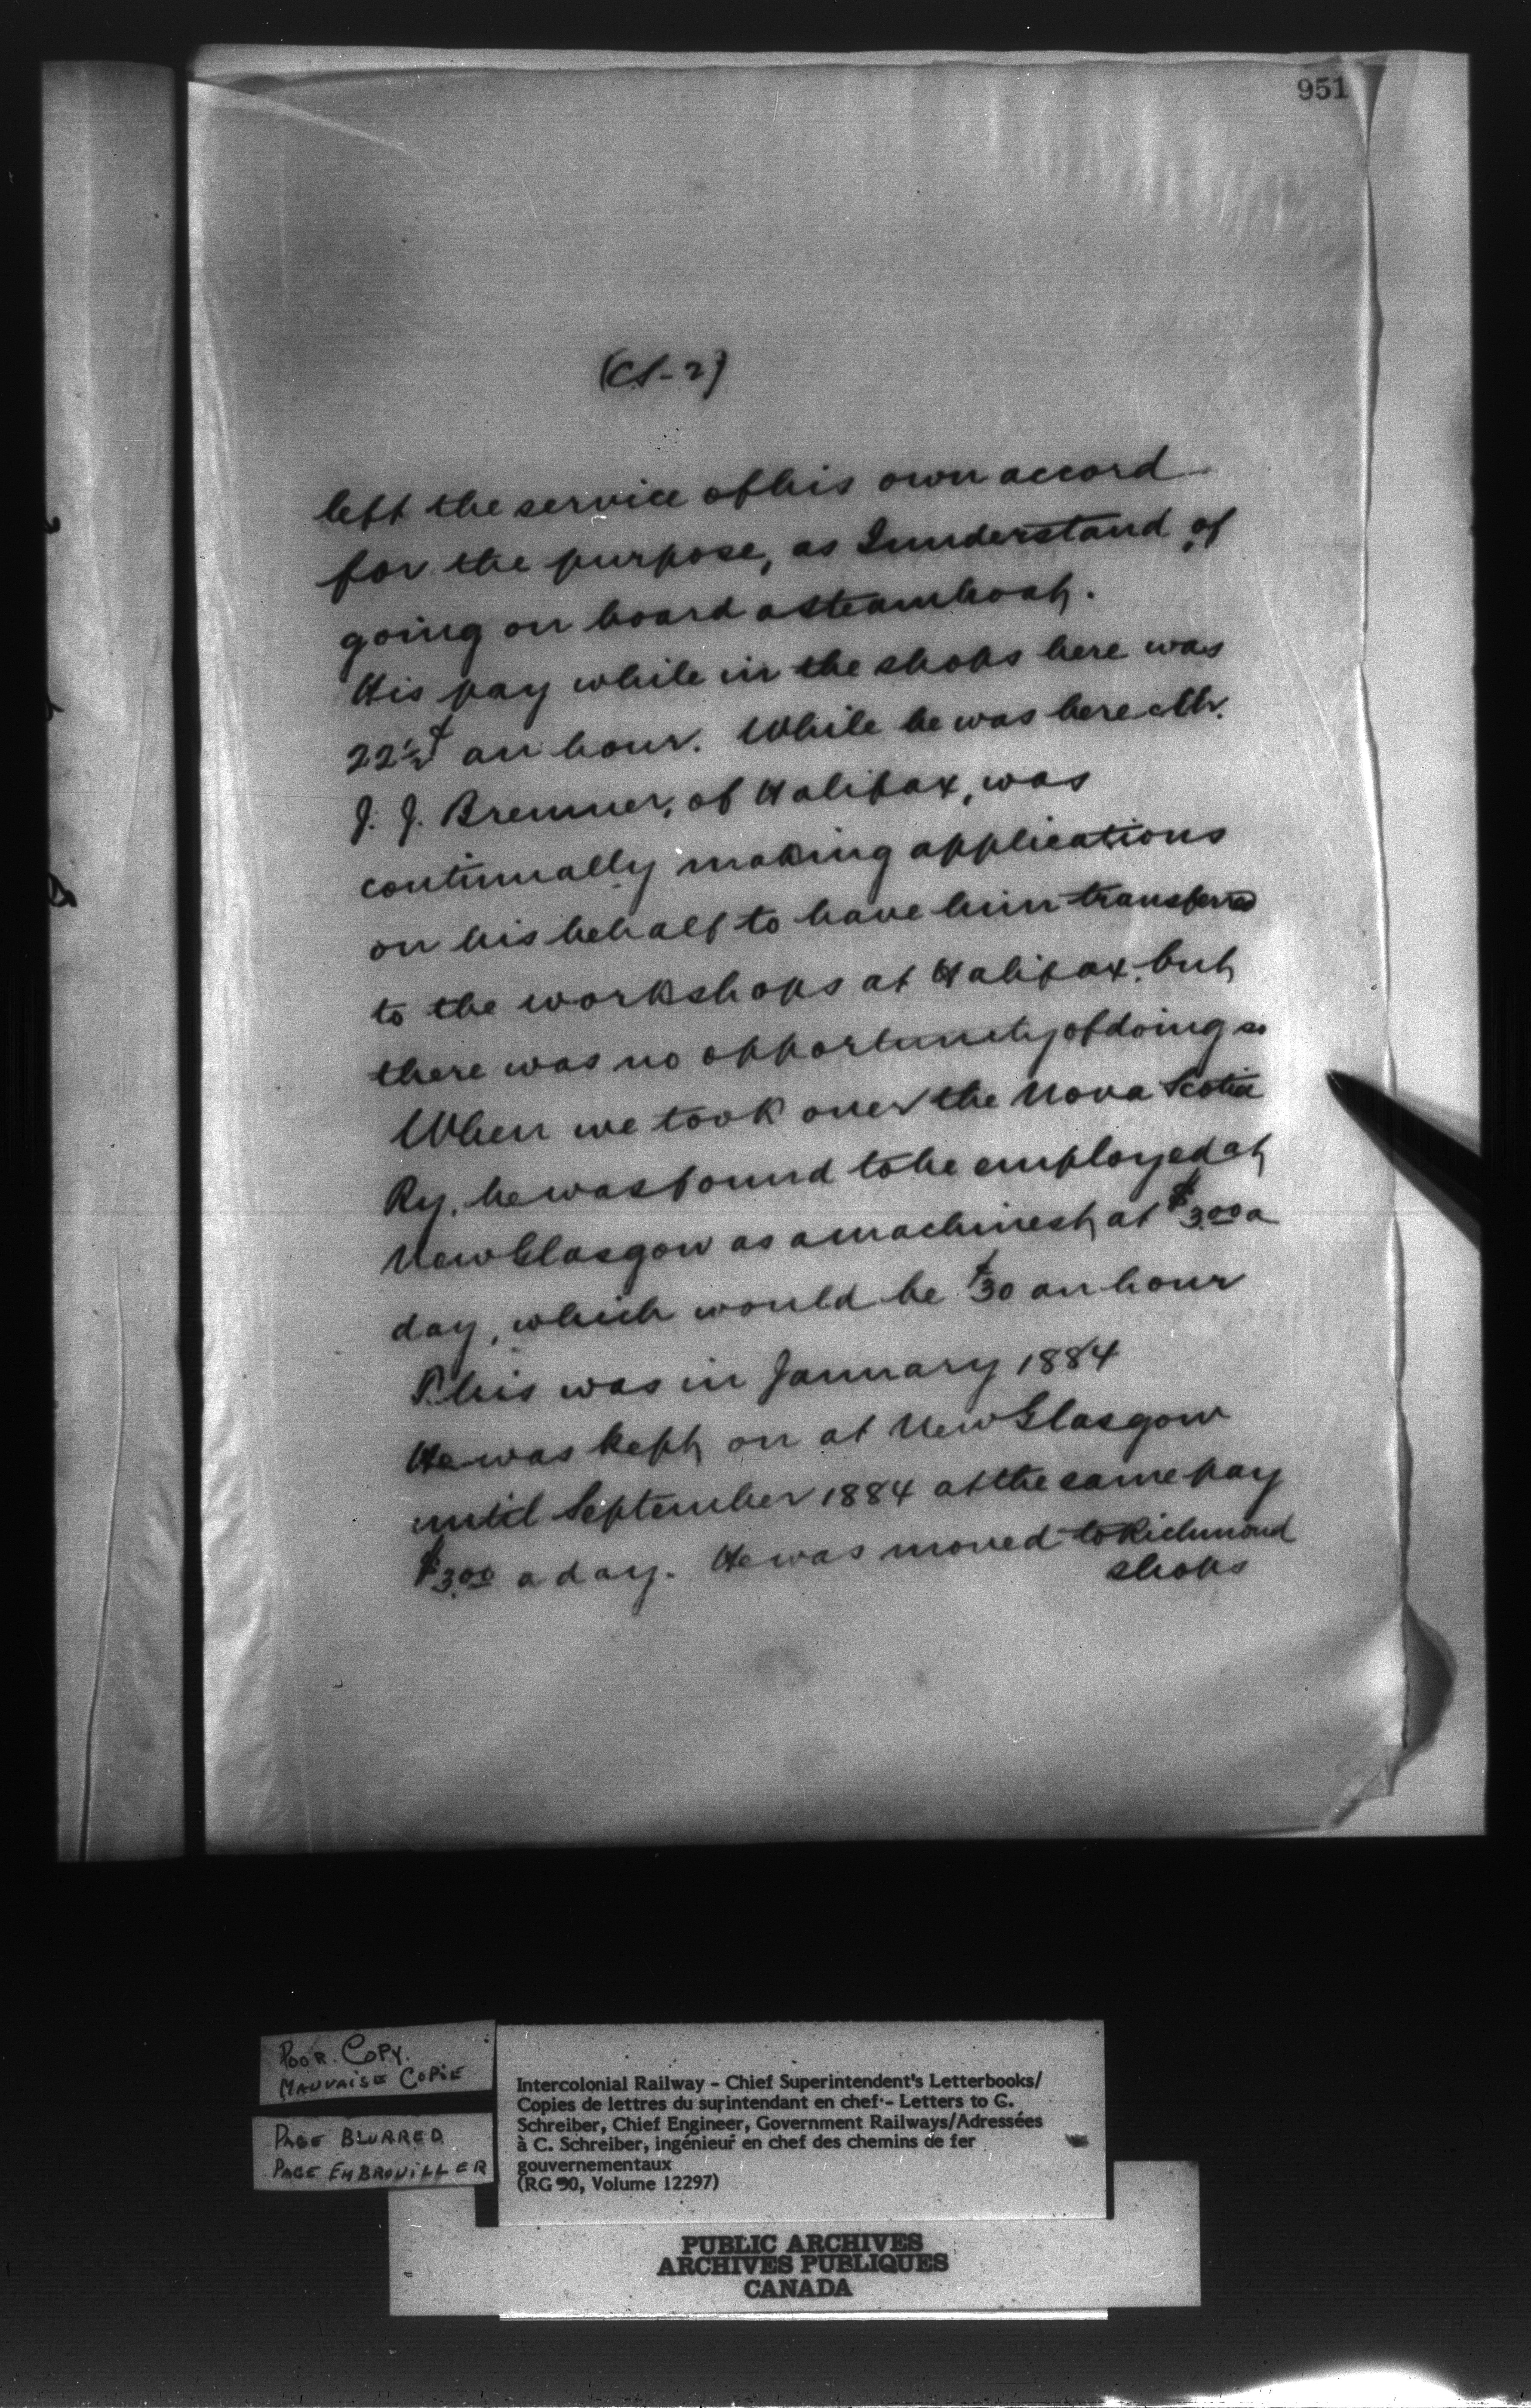 951
(CS-2)
left the service of his own accord
for the purpose, as I understand, of
going on board a steamboat.
His pay while in the shops here was
22½¢ an hour. While he was here Mr.
J. J. Bremner, of Halifax, was
continually making applications
on his behalf to have him transferred
to the workshops at Halifax, but
there was no opportunity of doing so
When we took over the Nova Scotia
Ry, he was found to be employed at
New Glasgow as a machinest, at $3.00 a
day, which would be ¢30 an hour
This was in January 1884
He was kept on at New Glasgow
until September 1884 at the same pay
$3.00 a day. He was moved to Richmond
shops
POOR COPY.
MAUVAISE COPIE
PAGE BLURRED
PAGE EMBROUILLER
Intercolonial Railway - Chief Superintendent's Letterbooks/
Copies de lettres du surintendant en chef - Letters to C.
Schreiber, Chief Engineer, Government Railways/Adressées
à C. Schreiber, ingénieur en chef des chemins de fer
gouvernementaux
(RG 30, Volume 12297)
PUBLIC ARCHIVES
ARCHIVES PUBLIQUES
CANADA